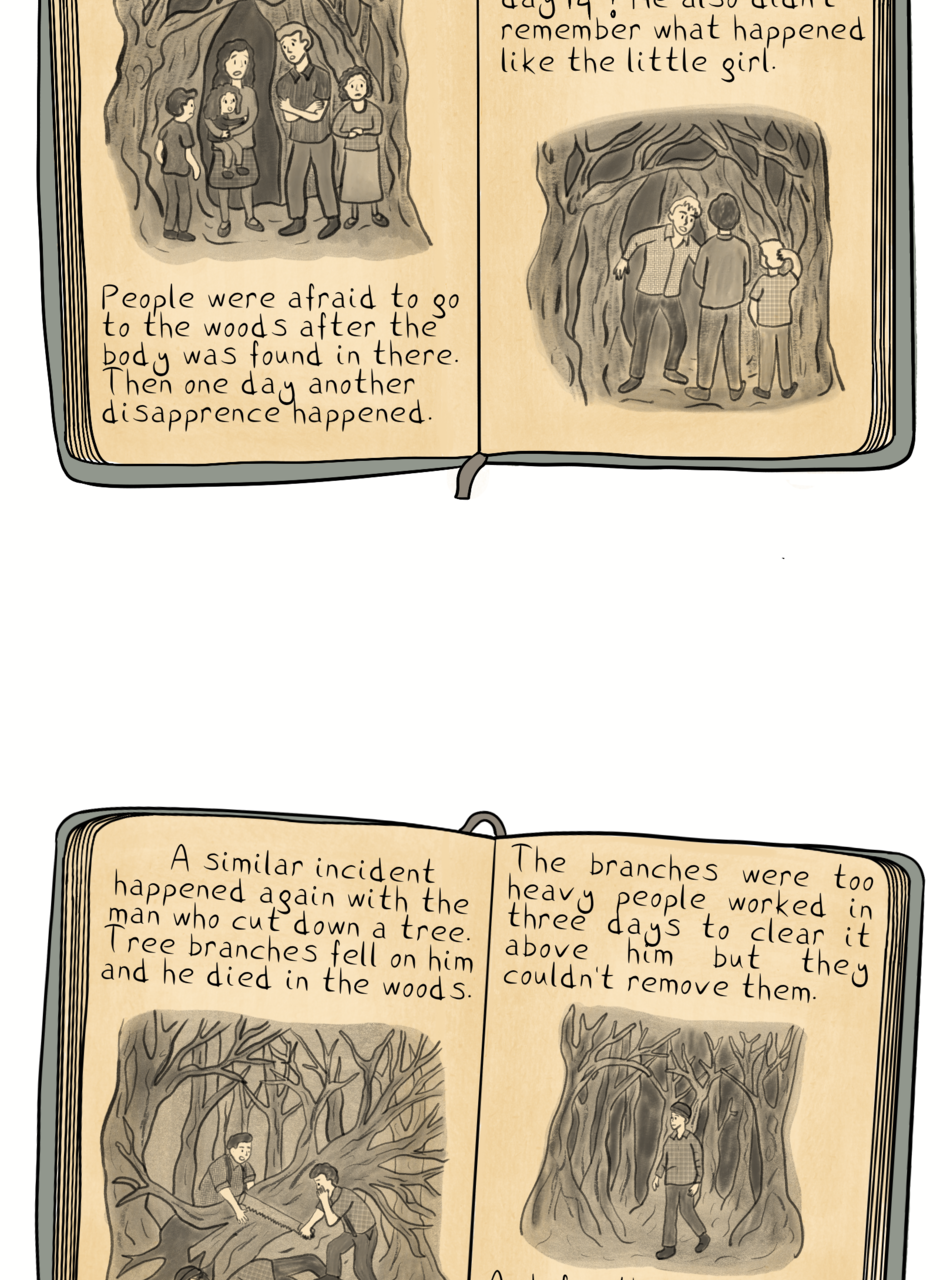 People were afraid to go
to the woods after the
body was found in there.
Then one day another
disapprence happened.
remember what happened
like the little girl.
A similar incident
happened again with the
man who cut down a tree.
Tree branches fell on him
and he died in the woods.
The branches were too
heavy people worked in
three days to clear it
above him but they
couldn't remove them.